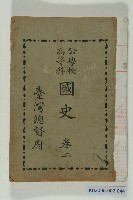 公學校
高等科
國史 卷二
臺灣總督府